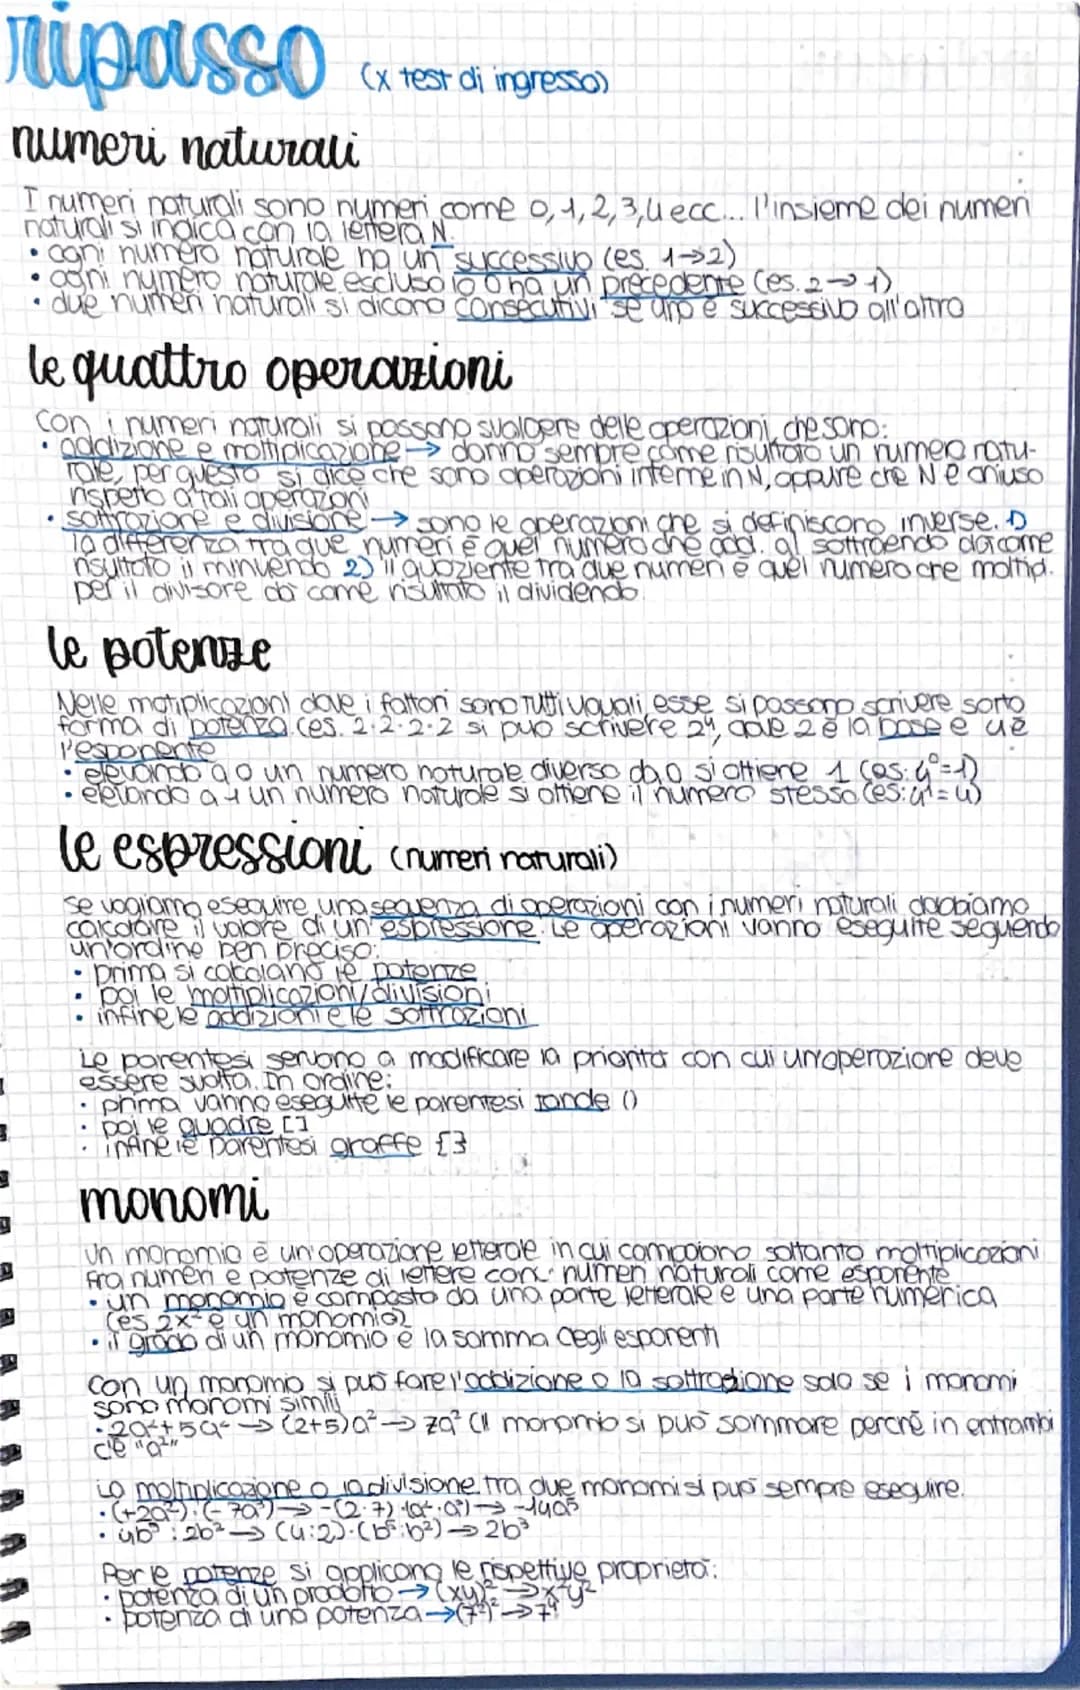 ripasso (x test di ingresso)
numeri naturali
I numeri naturali sono numeri come 0, 1, 2, 3, 4 ecc... l'insieme dei numeri
naturali si indica con la lettera N.
• ogni numero naturale ha un successivo (es. 1→2)
• ogni numero naturale escluso lo 0 ha un precedente (es. 2→1)
• due numeri naturali si dicono consecutivi se uno è successivo all'altro
le quattro operazioni
Con i numeri naturali si possono svolgere delle operazioni, che sono:
• addizione e moltiplicazione → danno sempre come risultato un numero natu-
rale, per questo si dice che sono operazioni interne in N, oppure che N è chiuso
rispetto a tali operazioni
• sottrazione e divisione → sono le operazioni che si definiscono inverse. 1)
la differenza tra due numeri è quel numero che add. al sottraendo dà come
risultato il minuendo 2) il quoziente tra due numeri è quel numero che moltip.
per il divisore dà come risultato il dividendo.
le potenze
Nelle moltiplicazioni dove i fattori sono tutti uguali, esse si possono scrivere sotto
forma di potenza (es. 2·2·2·2 si può scrivere 2⁴, dove 2 è la base e 4 è
l'esponente
• elevando a 0 un numero naturale diverso da 0 si ottiene 1 (es: 4⁰=1)
• elevando a 1 un numero naturale si ottiene il numero stesso (es: 4¹=4)
le espressioni (numeri naturali)
Se vogliamo eseguire una sequenza di operazioni con i numeri naturali dobbiamo
calcolare il valore di un'espressione. Le operazioni vanno eseguite seguendo
un'ordine ben preciso:
• prima si calcolano le potenze
• poi le moltiplicazioni/divisioni
• infine le addizioni e le sottrazioni
Le parentesi servono a modificare la priorità con cui un'operazione deve
essere svolta. In ordine:
• prima vanno eseguite le parentesi tonde ()
• poi le quadre []
• infine le parentesi graffe {}
monomi
Un monomio è un'operazione letterale in cui compaiono soltanto moltiplicazioni
fra numeri e potenze di lettere con numeri naturali come esponente
• un monomio è composto da una parte letterale e una parte numerica
(es 2x² è un monomio)
• il grado di un monomio è la somma degli esponenti
Con un monomio si può fare l'addizione o la sottrazione solo se i monomi
sono monomi simili
• 2a²+5a² → (2+5)a² → 7a² (il monomio si può sommare perchè in entrambi
c'è "a²"
La moltiplicazione o la divisione tra due monomi si può sempre eseguire.
• (+2a²)·(-7a³) → -(2·7)·(a²·a³) → -14a⁵
• 4b⁵ : 2b² → (4:2)·(b⁵:b²) → 2b³
Per le potenze si applicano le rispettive proprietà:
• potenza di un prodotto → (xy)² → x²y²
• potenza di una potenza → (7²)² → 7⁴